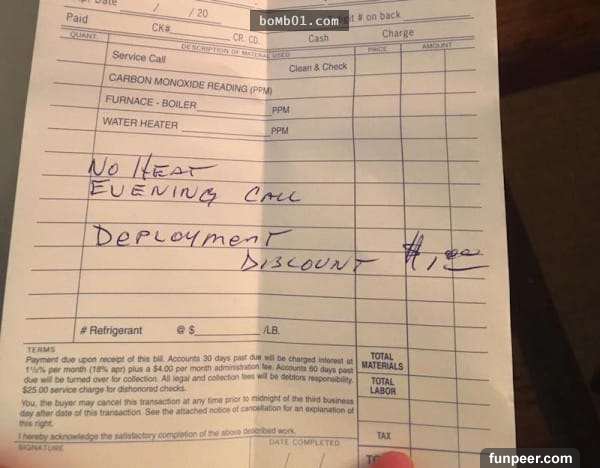 Date / / 20
boMb01.com
# on back
Paid CK# CR. CD. Cash Charge
QUANT. DESCRIPTION OF MATERIAL USED PRICE AMOUNT
Service Call Clean & Check
CARBON MONOXIDE READING (PPM)
FURNACE - BOILER PPM
WATER HEATER PPM
NO HEAT
EVENING CALL
DEPLOYMENT
DISCOUNT $1.00
# Refrigerant @ $ /LB.
TERMS
Payment due upon receipt of this bill. Accounts 30 days past due will be charged interest at
1½% per month (18% apr) plus a $4.00 per month administration fee. Accounts 60 days past
due will be turned over for collection. All legal and collection fees will be debtors responsibility.
$25.00 service charge for dishonored checks.
You, the buyer may cancel this transaction at any time prior to midnight of the third business
day after date of this transaction. See the attached notice of cancellation for an explanation of
this right.
I hereby acknowledge the satisfactory completion of the above described work.
SIGNATURE DATE COMPLETED
/ /
TOTAL
MATERIALS
TOTAL
LABOR
TAX
funpeer.com